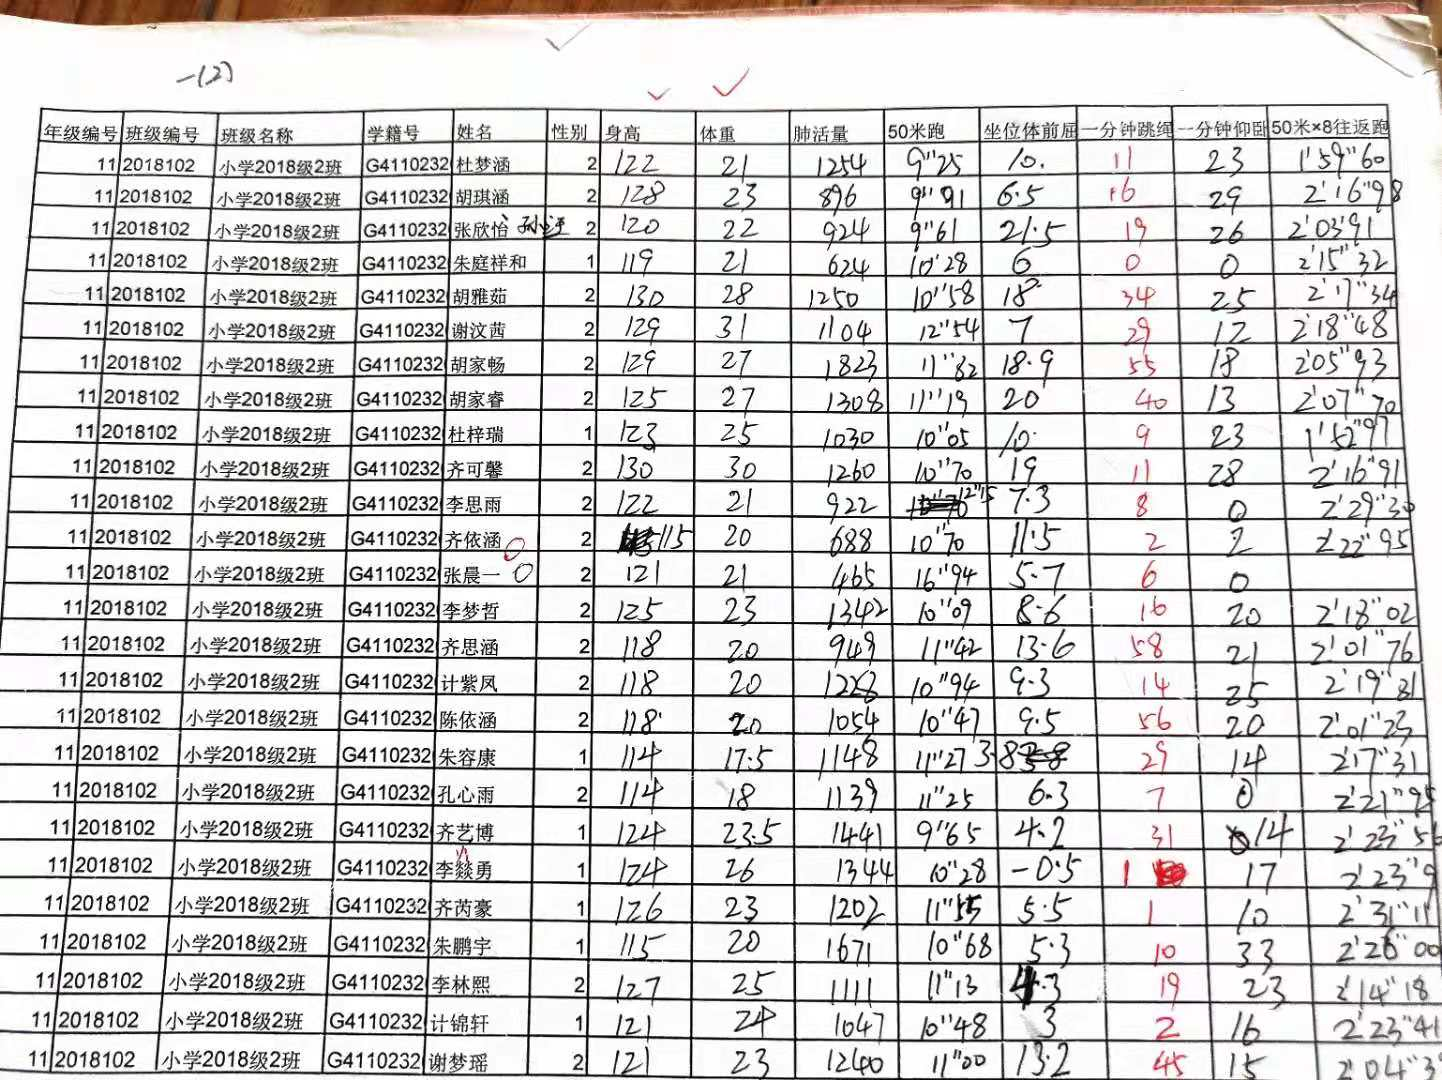 一(2)
年级编号 班级编号 班级名称 学籍号 姓名 性别 身高 体重 肺活量 50米跑 坐位体前屈 一分钟跳绳 一分钟仰卧 50米×8往返跑
11 2018102 小学2018级2班 G4110232 杜梦涵 2 122 21 1254 9"25 10. 11 23 1'59"60
11 2018102 小学2018级2班 G4110232 胡琪涵 2 128 23 896 9"91 6.5 16 29 2'16"98
11 2018102 小学2018级2班 G4110232 张欣怡 2 120 22 924 9"61 21.5 19 26 2'03'91
11 2018102 小学2018级2班 G4110232 朱庭祥和 1 119 21 624 10'28 6 0 0 2'15"32
11 2018102 小学2018级2班 G4110232 胡雅茹 2 130 28 1250 10"58 18 34 25 2'17"34
11 2018102 小学2018级2班 G4110232 谢汶茜 2 129 31 1104 12"54 7 29 12 2'18"48
11 2018102 小学2018级2班 G4110232 胡家畅 2 129 27 1823 11"82 18.9 55 18 2'05"93
11 2018102 小学2018级2班 G4110232 胡家睿 2 125 27 1308 11"19 20 40 13 2'07"70
11 2018102 小学2018级2班 G4110232 杜梓瑞 1 123 25 1030 10"05 10. 9 23 1'52"97
11 2018102 小学2018级2班 G4110232 齐可馨 2 130 30 1260 10"70 19 11 28 2'16"91
11 2018102 小学2018级2班 G4110232 李思雨 2 122 21 922 12"15 7.3 8 0 2'29"30
11 2018102 小学2018级2班 G4110232 齐依涵 2 115 20 688 10"70 11.5 2 2 2'22"95
11 2018102 小学2018级2班 G4110232 张晨一 2 121 21 465 16"94 5.7 6 0
11 2018102 小学2018级2班 G4110232 李梦哲 2 125 23 1342 10"09 8.6 16 20 2'18"02
11 2018102 小学2018级2班 G4110232 齐思涵 2 118 20 949 11"42 13.6 58 21 2'01"76
11 2018102 小学2018级2班 G4110232 计紫凤 2 118 20 1228 10"94 9.3 14 25 2'19"81
11 2018102 小学2018级2班 G4110232 陈依涵 2 118 20 1054 10"47 9.5 56 20 2'01"23
11 2018102 小学2018级2班 G4110232 朱容康 1 114 17.5 1148 11"27 3.8 29 14 2'17"31
11 2018102 小学2018级2班 G4110232 孔心雨 2 114 18 1139 11"25 6.3 7 0 2'21"95
11 2018102 小学2018级2班 G4110232 齐艺博 1 124 23.5 1441 9"65 4.2 31 14 2'23"56
11 2018102 小学2018级2班 G4110232 李燚勇 1 124 26 1344 10"28 -0.5 1 17 2'23"9
11 2018102 小学2018级2班 G4110232 齐芮豪 1 126 23 1202 11"55 5.5 1 10 2'31"11
11 2018102 小学2018级2班 G4110232 朱鹏宇 1 115 20 1671 10"68 5.3 10 33 2'26"00
11 2018102 小学2018级2班 G4110232 李林熙 2 127 25 1111 11"13 4.3 19 23 2'14"18
11 2018102 小学2018级2班 G4110232 计锦轩 1 121 24 1047 10"48 3 2 16 2'23"41
11 2018102 小学2018级2班 G4110232 谢梦瑶 2 121 23 1240 11"00 13.2 45 15 2'04"3